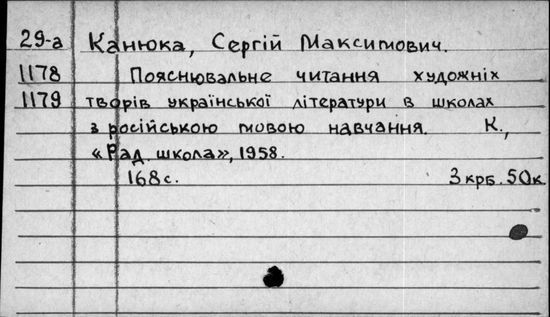 29-а Канюка, Сергій Максимович.
1178 Пояснювальне читання художніх
1179 творів української літератури в школах
з російською мовою навчання. К.,
«Рад. школа», 1958.
168 с. 3 крб. 50 к.